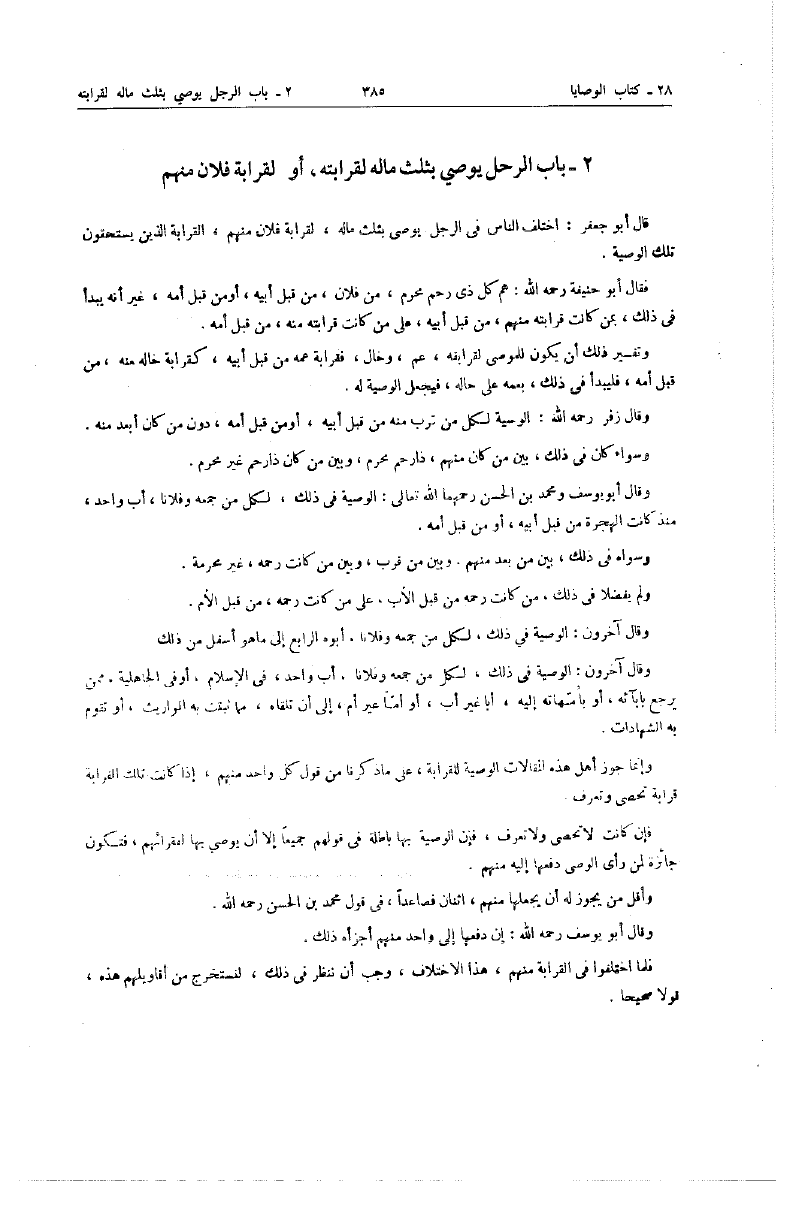 ٢٨ ـ كتاب الوصايا ٣٨٥ ٢ ـ باب الرجل يوصي بثلث ماله لقرابته
٢ ـ باب الرحل يوصي بثلث ماله لقرابته ، أو لقرابة فلان منهم
قال أبو جعفر : اختلف الناس فى الرجل يوصى بثلث ماله ، لقرابة فلان منهم ، القرابة الذين يستحقون
تلك الوصية .
فقال أبو حنيفة رحمه الله : هم كل ذى رحم محرم ، من فلان ، من قبل أبيه ، أو من قبل أمه ، غير أنه يبدأ
فى ذلك ، بمن كانت قرابته منهم ، من قبل أبيه ، على من كانت قرابته منه ، من قبل أمه .
وتفسير ذلك أن يكون للموصى لقرابته ، عم ، وخال ، فقرابة عمه من قبل أبيه ، كقرابة خاله منه ، من
قبل أمه ، فليبدأ فى ذلك ، بعمه على خاله ، فيجعل الوصية له .
وقال زفر رحمه الله : الوصية لكل من قرب منه من قبل أبيه ، أو من قبل أمه ، دون من كان أبعد منه .
وسواء كان فى ذلك ، بين من كان منهم ، ذا رحم محرم ، وبين من كان ذا رحم غير محرم .
وقال أبو يوسف ومحمد بن الحسن رحمهما الله تعالى : الوصية فى ذلك ، لكل من جمعه وفلانا ، أب واحد ،
منذ كانت الهجرة من قبل أبيه ، أو من قبل أمه .
وسواء فى ذلك ، بين من بعد منهم . وبين من قرب ، وبين من كانت رحمه ، غير محرمة .
ولم يفضلا فى ذلك ، من كانت رحمه من قبل الأب ، على من كانت رحمه ، من قبل الأم .
وقال آخرون : الوصية في ذلك ، لكل من جمعه وفلانا . أبوه الرابع إلى ما هو أسفل من ذلك
وقال آخرون : الوصية فى ذلك ، لكل من جمعه وفلانا . أب واحد ، فى الإسلام ، أو فى الجاهلية . ممن
يرجع بآبائه ، أو بأمهاته إليه ، أبا غير أب ، أو أمًّا غير أم ، إلى أن تلقاه ، مما ثبتت به المواريث ، أو تقوم
به الشهادات .
وإنما جوز أهل هذه المقالات الوصية للقرابة ، على ما ذكرنا من قول كل واحد منهم ، إذا كانت تلك القرابة
قرابة تحصى وتعرف .
فإن كانت لا تحصى ولا تعرف ، فإن الوصية بها باطلة فى قولهم جميعاً إلا أن يوصي بها لفقرائهم ، فتكون
جائزة لمن رأى الوصى دفعها إليه منهم .
وأقل من يجوز له أن يجعلها منهم ، اثنان فصاعداً ، فى قول محمد بن الحسن رحمه الله .
وقال أبو يوسف رحمه الله : إن دفعها إلى واحد منهم أجزأه ذلك .
فلما اختلفوا فى القرابة منهم ، هذا الاختلاف ، وجب أن ننظر فى ذلك ، لنستخرج من أقاويلهم هذه ،
قولا صحيحا .